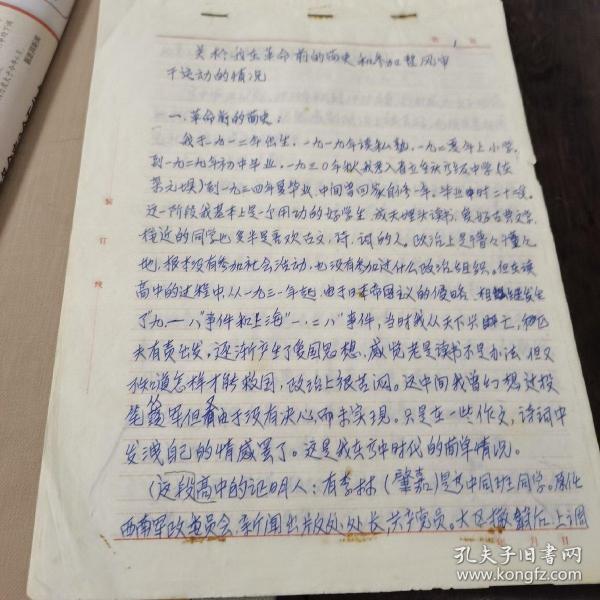 1
关于我在革命前的简史和参加整风审
干运动的情况
一、革命前的简史:
我于一九一二年出生,一九一九年读私塾,一九二 年上小学,
到一九二九年初中毕业,一九三〇年秋我考入省立 高级中学(在
)到一九三四年夏毕业,中间曾回家自修一年,毕业时二十二岁。
这一阶段我基本上是一个用功的好学生,成天埋头读书,爱好古典文学,
接近的同学也多半是喜欢古文,诗,词的人。政治上是懵々懂々
地,根本没有参加社会活动,也没有参加过什么政治组织。但在读
高中的过程中,从一九三一年起,由于日本帝国主义的侵略,相继发生
了"九·一八"事件和上海"一·二八"事件,当时我从天下兴亡,匹
夫有责出发,逐渐产生了爱国思想,感觉老是读书不是办法,但又
不知道怎样才能救国,政治上很苦闷。这中间我曾幻想过投
笔从军但由于没有决心而未实现。只是在一些作文,诗词中
发洩自己的情感罢了。这是我高中时代的简单情况。
(这段高中的证明人:有李林(肇嘉)是高中同班同学。原任
西南军政委员会新闻出版处处长,共产党员。大区撤销后上调
装
订
线
孔夫子旧书网
www.kongfz.com